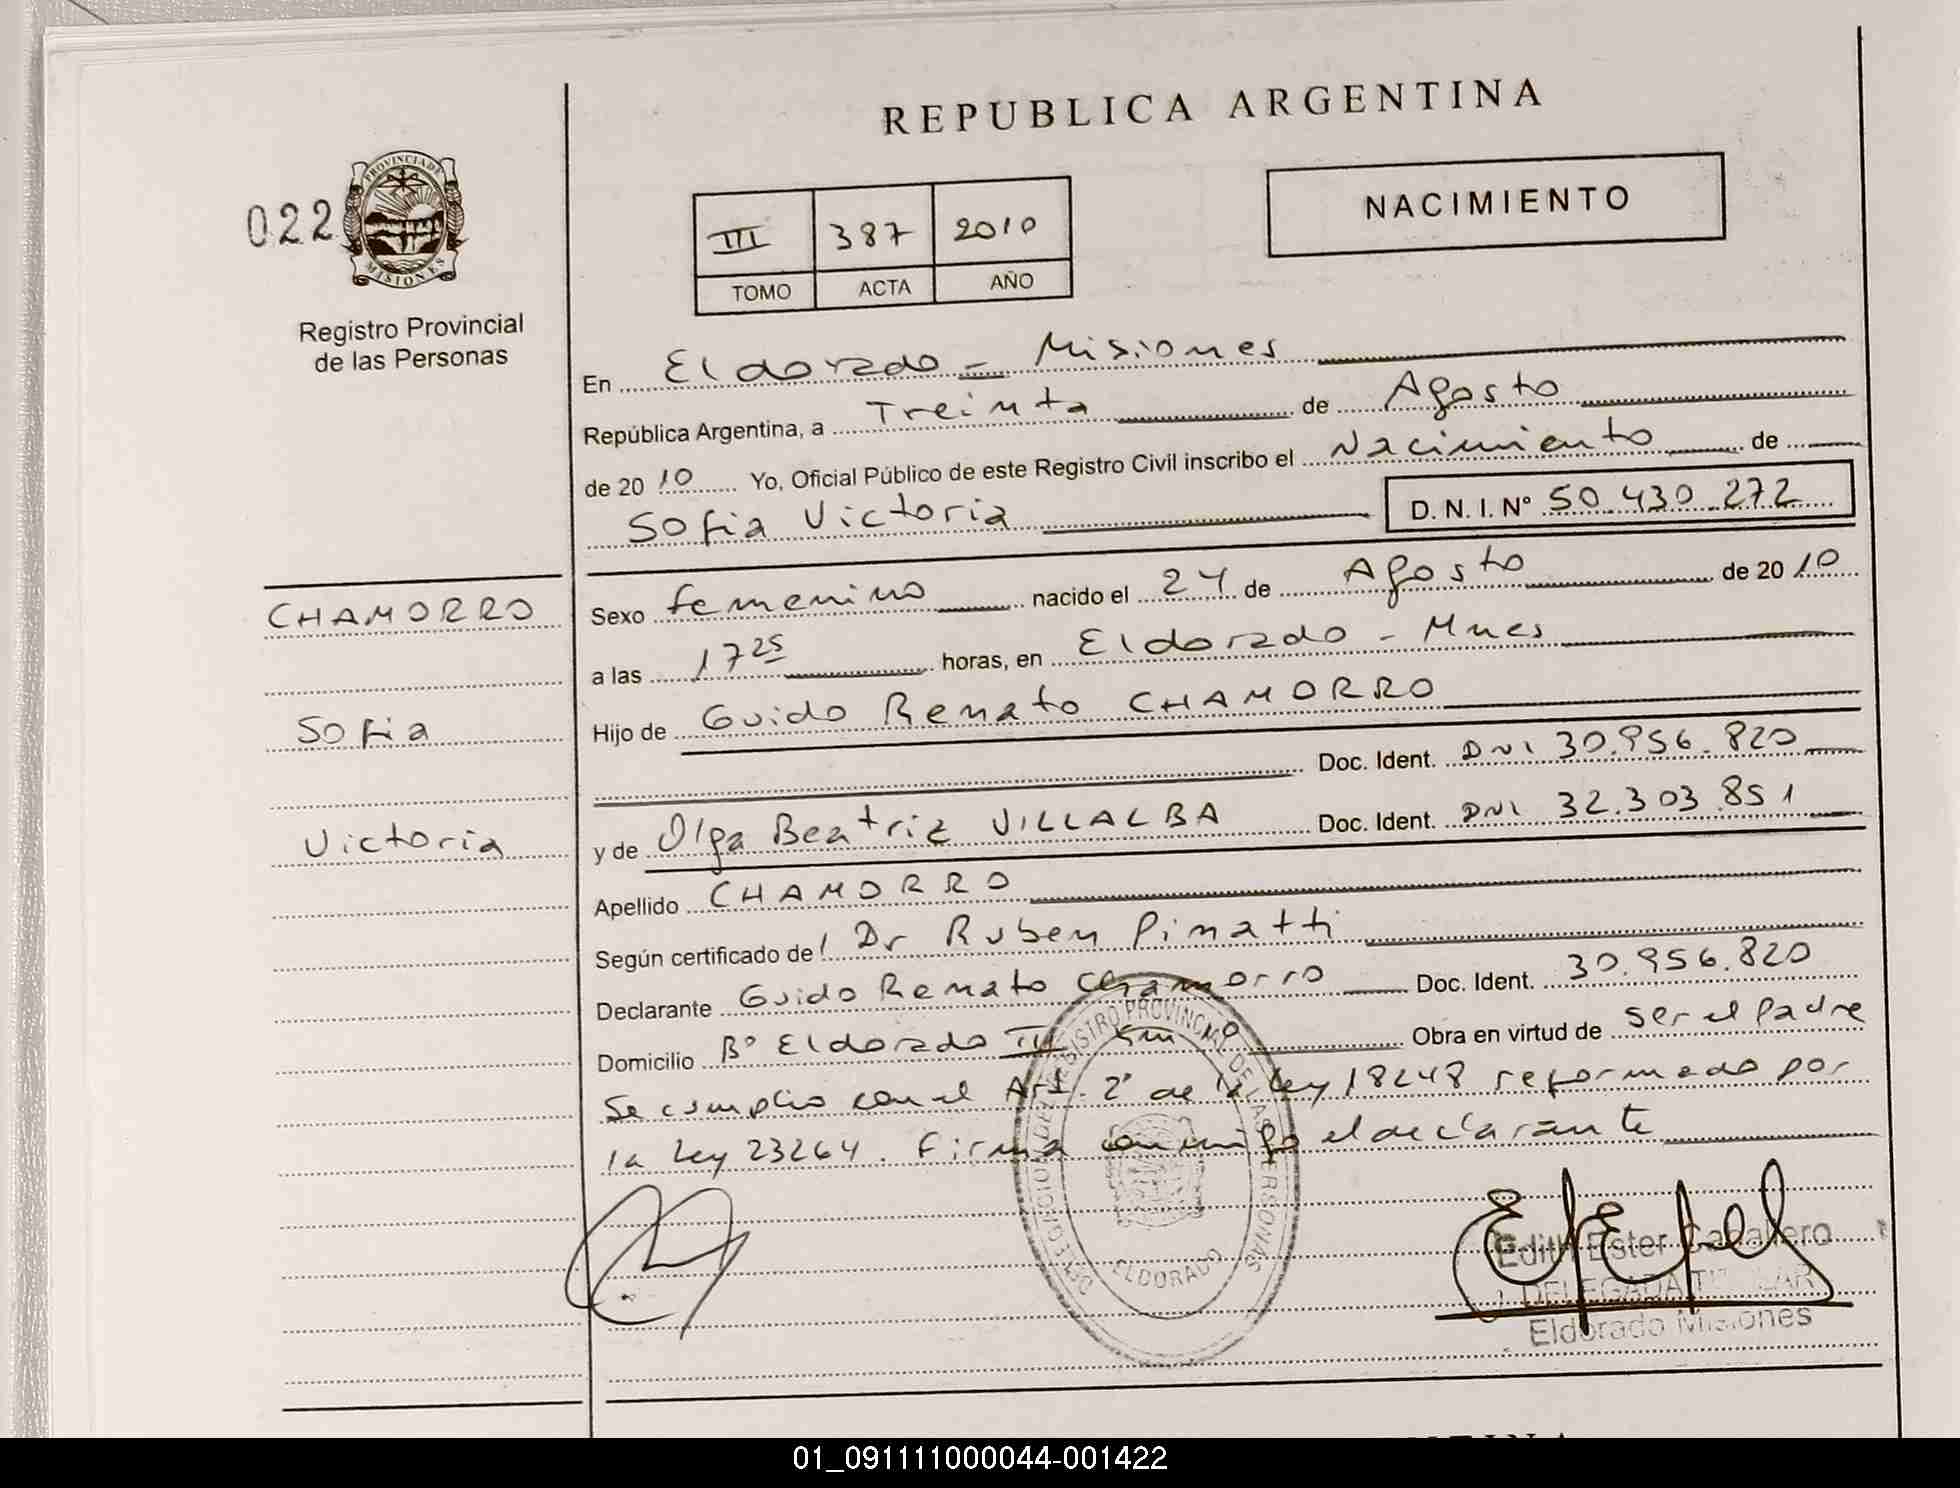 REPUBLICA ARGENTINA
022
PROVINCIA DE
MISIONES
Registro Provincial
de las Personas
III 387 2010
TOMO ACTA AÑO
NACIMIENTO
En Eldorado - Misiones
República Argentina, a Treinta de Agosto
de 2010 Yo, Oficial Público de este Registro Civil inscribo el Nacimiento de
Sofia Victoria D. N. I. N° 50.430.272
CHAMORRO
Sofia
Victoria
Sexo femenino nacido el 24 de Agosto de 2010
a las 17 25 horas, en Eldorado - Mnes
Hijo de Guido Renato CHAMORRO
Doc. Ident. DNI 30.956.820
y de Olga Beatriz VILLALBA Doc. Ident. DNI 32.303.851
Apellido CHAMORRO
Según certificado de Dr Ruben Pinatti
Declarante Guido Renato Chamorro Doc. Ident. 30.956.820
Domicilio B° Eldorado III Obra en virtud de ser el Padre
Se cumplio con el Art. 2° de la Ley 18248 reformado por
la Ley 23264. Firma conmigo el declarante
REGISTRO PROVINCIAL DE LAS PERSONAS
ELDORADO
Edith Ester Caballero
DELEGADA TITULAR
Eldorado Misiones
01_091111000044-001422